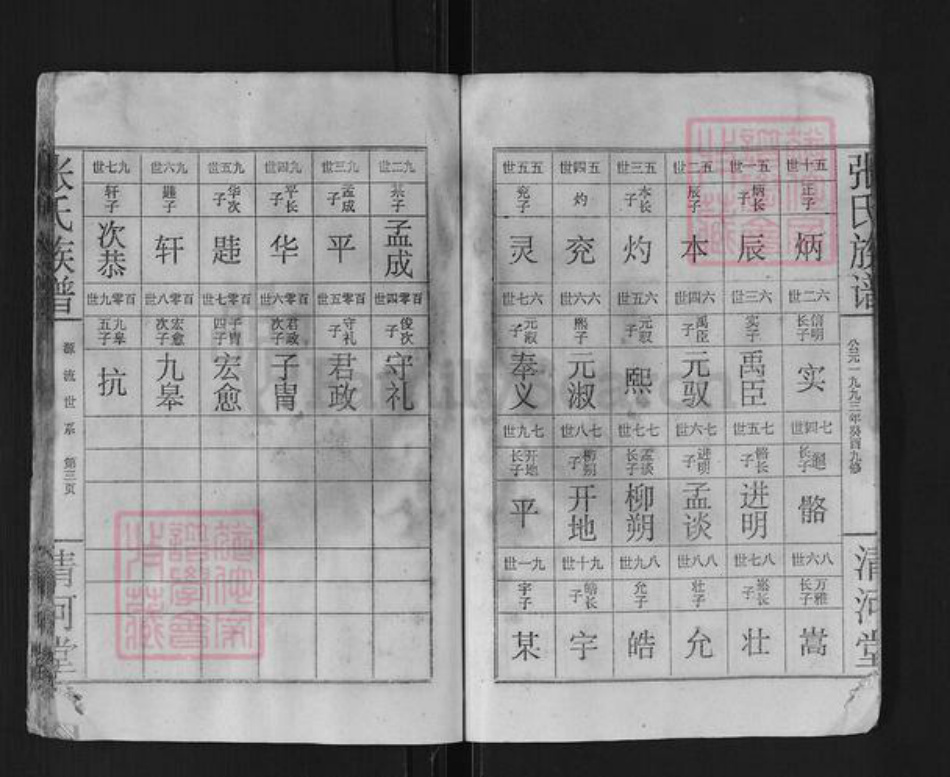 张氏族谱
公元一九九三年癸酉九修
清河堂
五十世 正子 炳
五一世 炳长子 辰
五二世 辰子 本
五三世 本长子 灼
五四世 灼 兖
五五世 兖子 灵
六二世 信明长子 实
六三世 实子 禹臣
六四世 禹臣子 元驭
六五世 元驭子 熙
六六世 熙子 元淑
六七世 元淑子 奉义
七四世 长子 骼
七五世 骼长子 进明
七六世 进明子 孟谈
七七世 孟谈长子 柳朔
七八世 柳朔子 开地
七九世 开地长子 平
八六世 万雅长子 嵩
八七世 嵩长子 壮
八八世 壮子 允
八九世 允子 皓
九十世 皓长子 宇
九一世 宇子 某
九二世 某子 孟成
九三世 孟成子 平
九四世 平长子 华
九五世 华次子 韪
九六世 韪子 轩
九七世 轩子 次恭
百零四世 俊次子 守礼
百零五世 守礼子 君政
百零六世 君政次子 子胄
百零七世 子胄四子 宏愈
百零八世 宏愈次子 九皋
百零九世 九皋五子 抗
张氏族谱
源流世系 第三页
清河堂